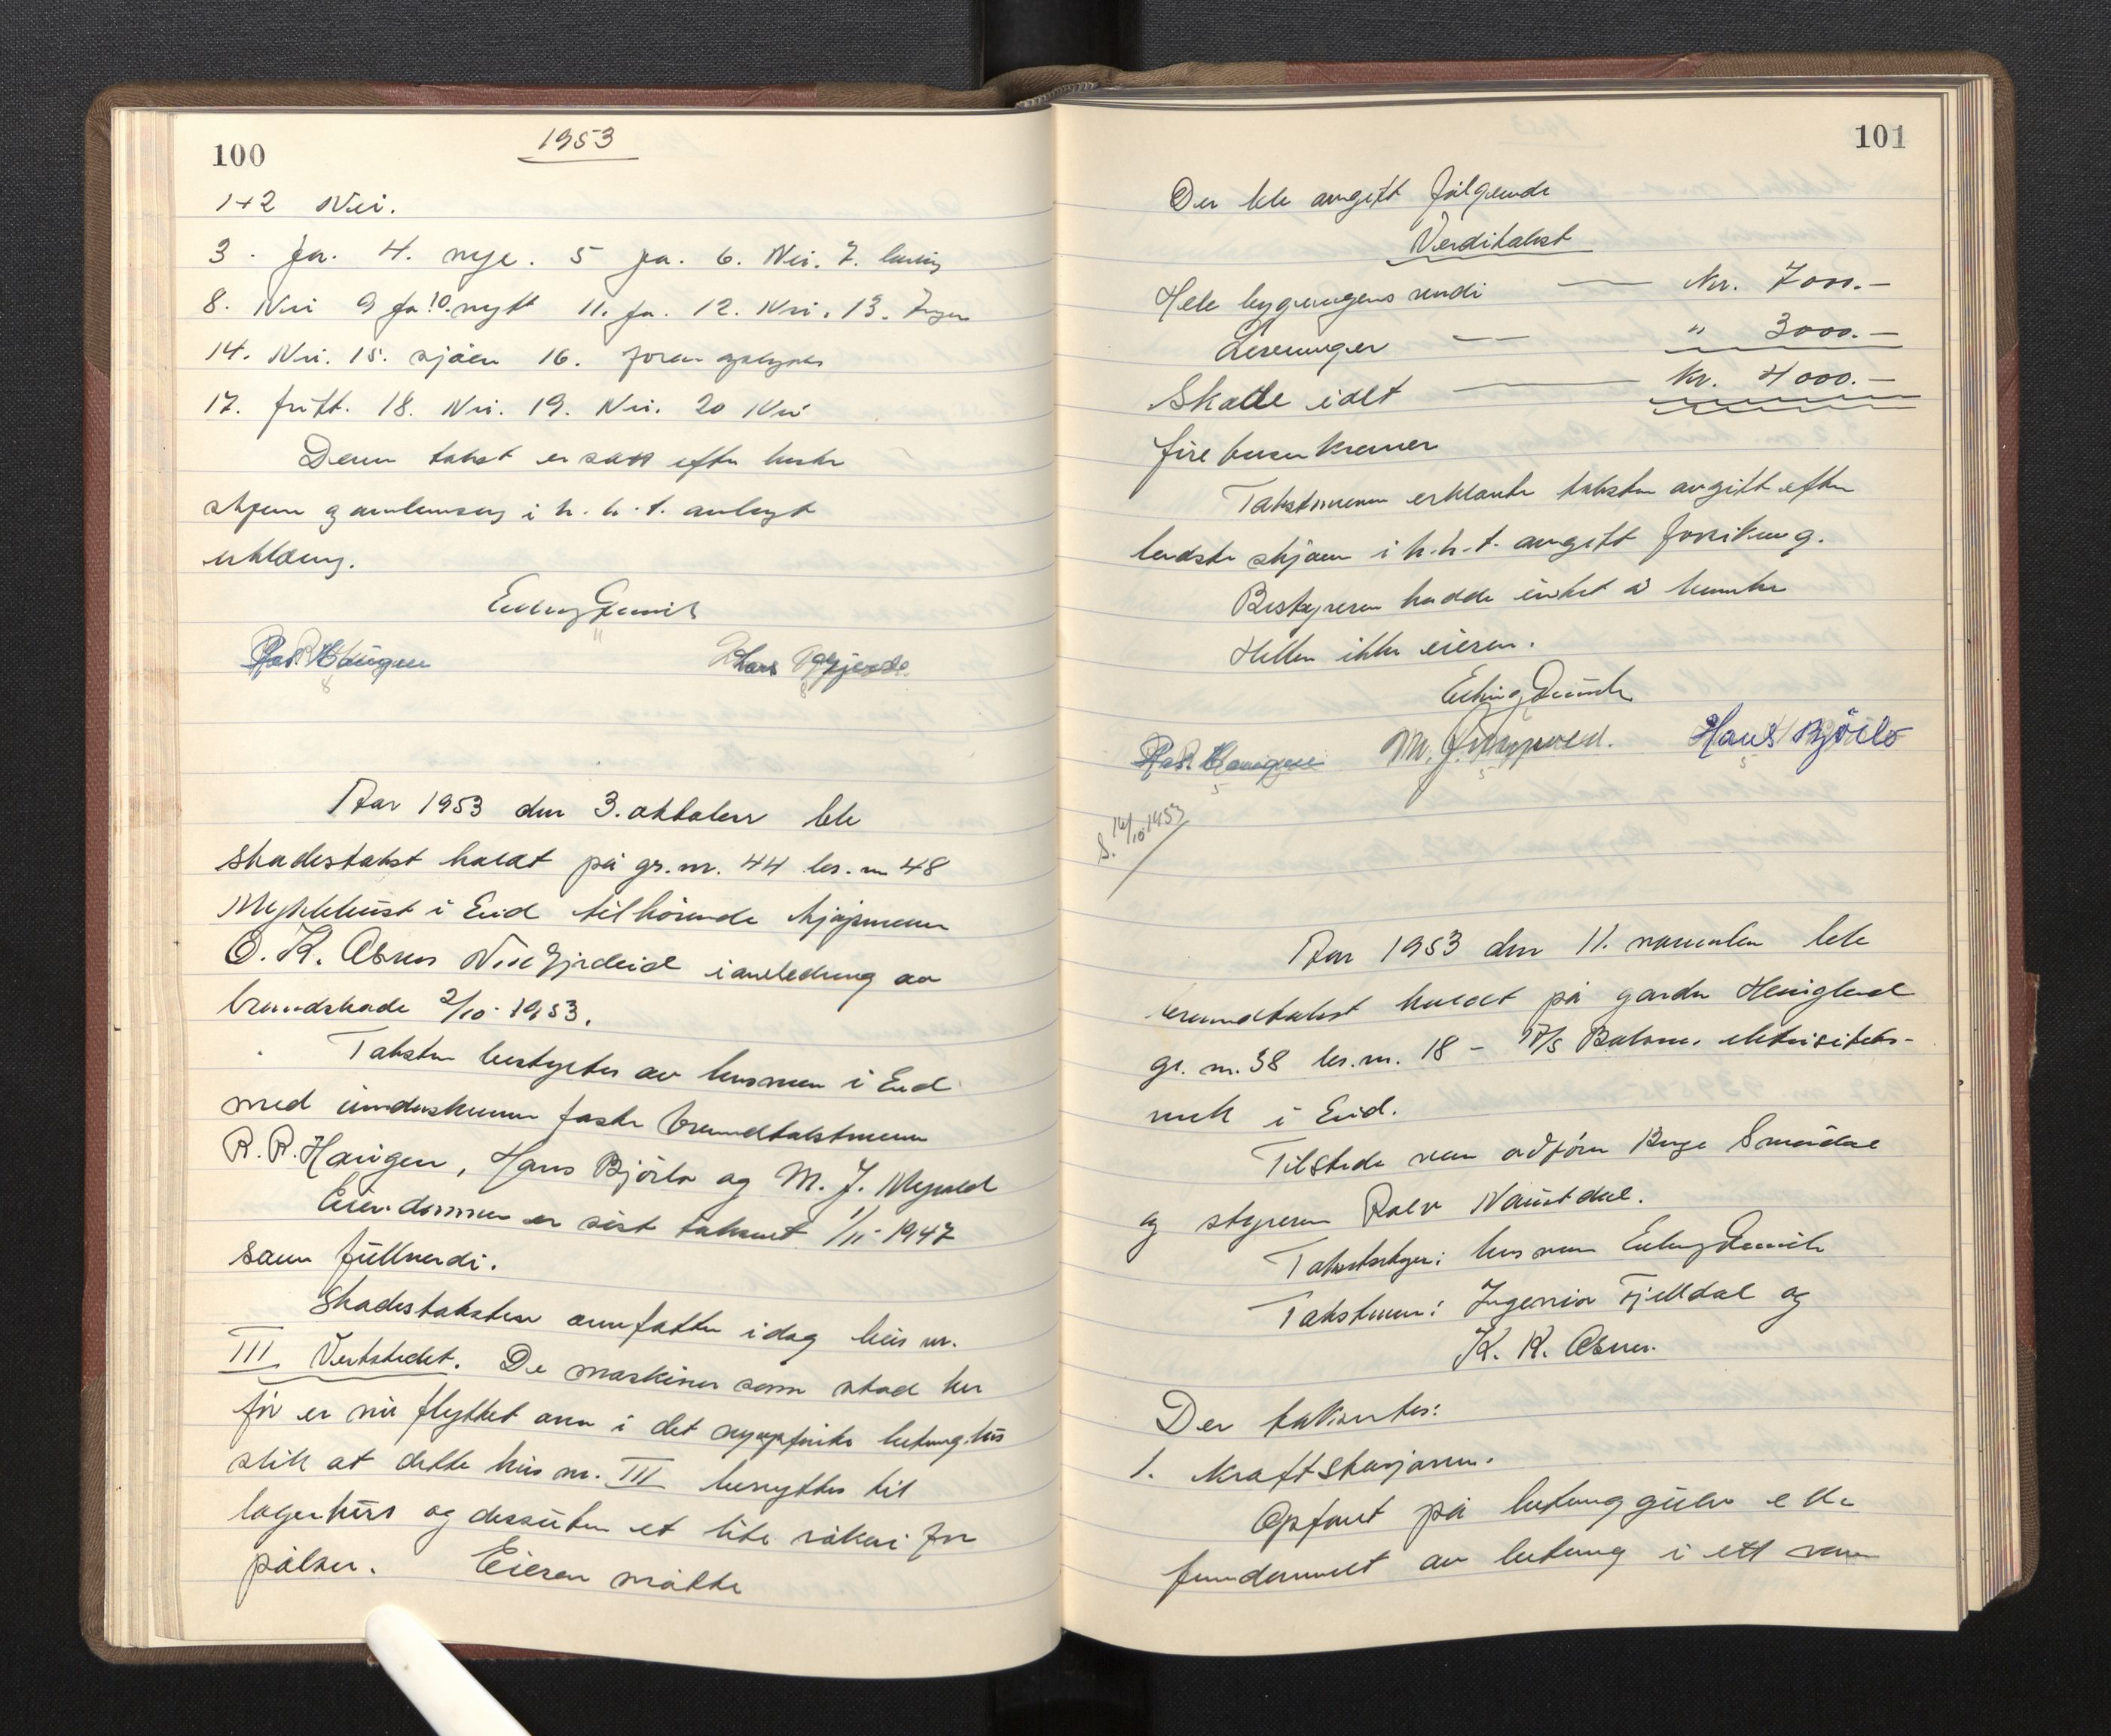 100
1953
1+2 Nei.
3. ja. 4. nye. 5 ja. 6. Nei. 7.
8. Nei 9 ja 10. nytt 11. ja. 12. Nei. 13. Ingen
14. Nei. 15. sjøen 16.
17. fritt. 18. Nei. 19. Nei. 20 Nei
Denne takst er satt efter beste
skjønn og i h.h.t. avlagt
erklæring.
Ras. R Haugen Hans
Aar 1953 den 3. oktober ble
skadestakst holdt på gr.nr. 44 br.nr 48
Myklebust i Eid tilhörende kjøpmann
O. K. Asnes Nordfjordeid i anledning av
brandskade 2/10-1953.
Taksten bestyrtes av lensmannen i Eid
med undertegnede faste brandtakstmenn
R. R. Haugen, Hans Björlo og M. J. Myrvold
Eiendommen er sist taksert 1/11-1947
som fullverdi.
Skadestaksten omfatter idag hus nr.
III Verkstedet. De maskiner som stod her
för er nu flyttet over i det nyopførte betong.hus
slik at dette hus nr. III benyttes til
lagerhus og dessuten et lite røkeri for
pølser. Eieren møtte
101
Der ble avgitt følgende
Verditakst
Hele bygningens verdi — Kr. 7000.-
Levninger — " 3000.-
Skade ialt — Kr. 4000.-
fire tusen kroner
Takstmennene erklærte taksten avgitt efter
bedste skjønn i h.h.t. avgitt forsikring.
Bestyreren hadde intet å bemerke
Heller ikke eieren.
Ras R. Haugen M. J. Myrvold. Hans Björlo
S. 16/10-1953
Aar 1953 den 11. november ble
branndtakst holdt på garden Heggland
gr. nr. 38 br.nr. 18 - A/S elektrisitets-
verk i Eid.
Tilstede var Smørdal
og styreren Rolv Naustdal.
Takstbestyrer: lensmann
Takstmenn: Ingeniør Fjelldal og
K. K. Asnes.
Der takseertes:
1. Kraftstasjonen.
Opført på betonggulv eller
fundament av betong i ett rom